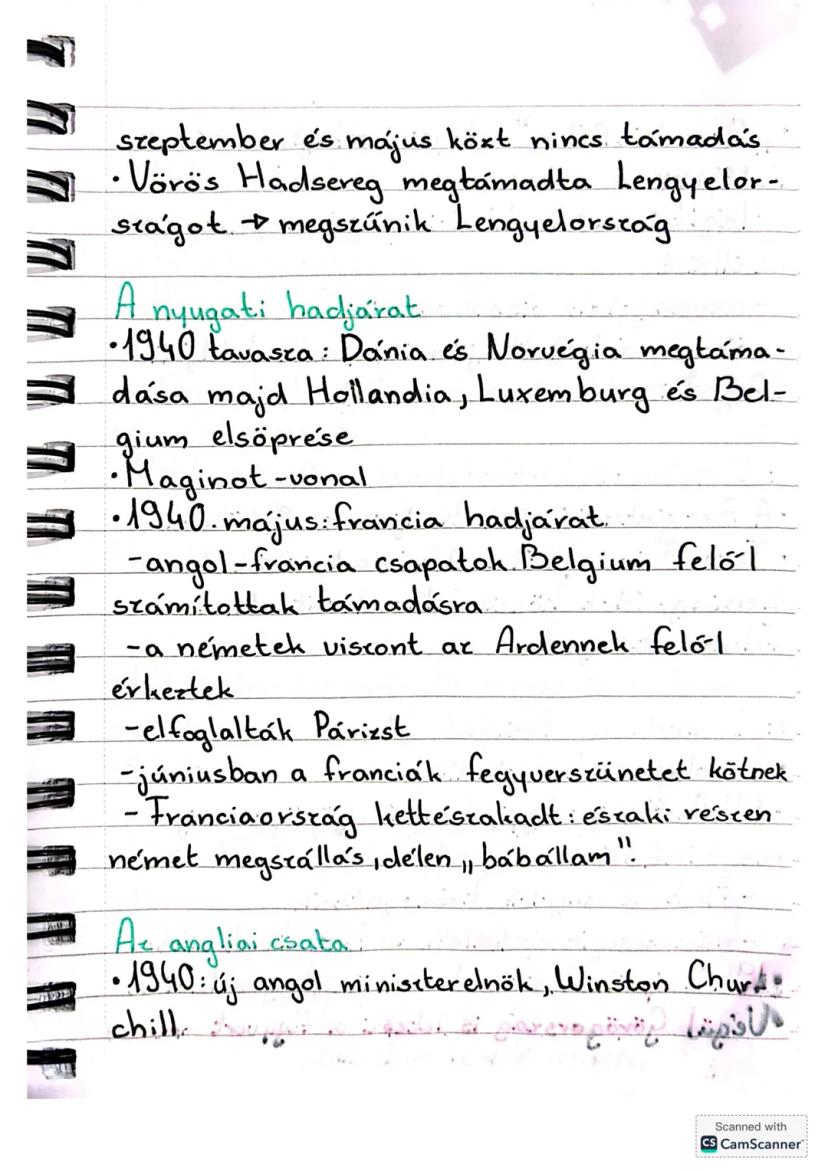 szeptember és május közt nincs támadás
• Vörös Hadsereg megtámadta Lengyelor-
szágot → megszűnik Lengyelország
A nyugati hadjárat
•1940 tavasza: Dánia és Norvégia megtáma-
dása majd Hollandia, Luxemburg és Bel-
gium elsöprése
•Maginot-vonal
•1940. május: francia hadjárat
-angol-francia csapatok Belgium felől
számítottak támadásra
-a németek viszont az Ardennek felől
érkeztek
-elfoglalták Párizst
-júniusban a franciák fegyverszünetet kötnek
- Franciaország kettészakadt: északi részen
német megszállás, délen „bábállam".
Az angliai csata
•1940: új angol miniszterelnök, Winston Chur-
chill
Scanned with
CS CamScanner